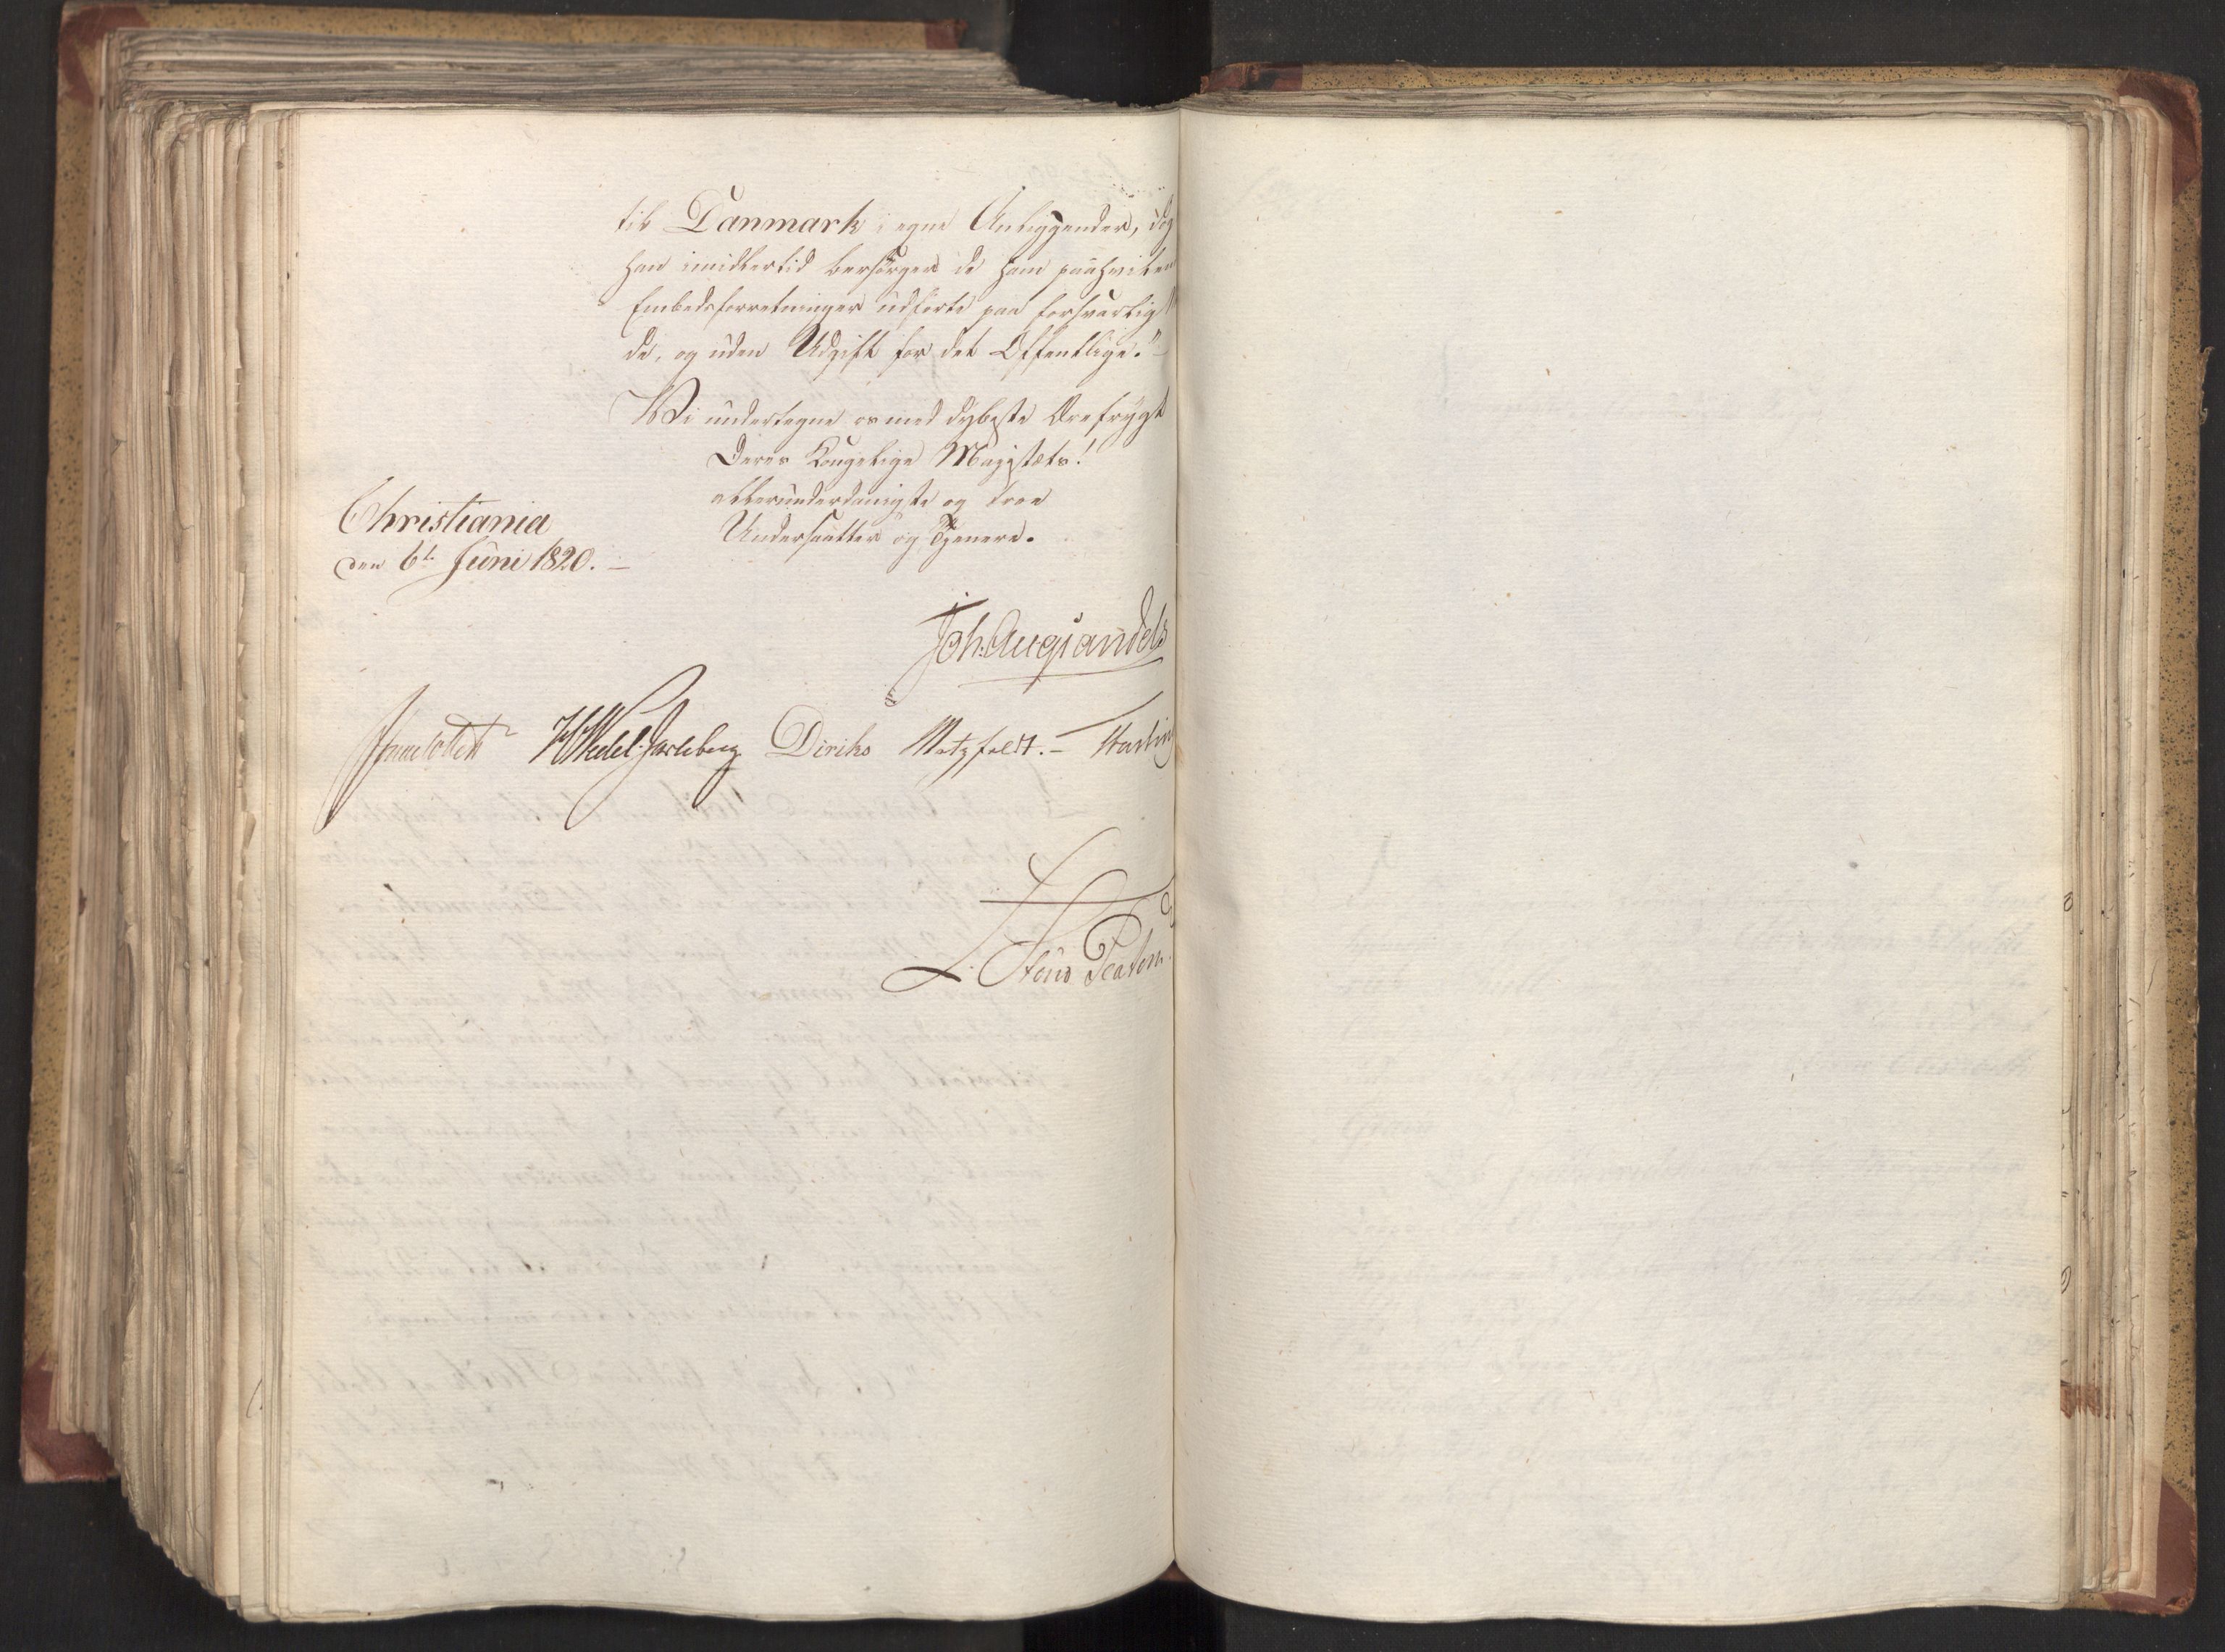 til Danmark i egne Anliggender, dog
han imidlertid besørger de ham paahvilen
Embedsforretninger udførte paa forsvarlig
de, og uden Udgift for det Offentlige."
Vi undertegne os med dybeste Ærefrygt
Deres Kongelige Majestæts!
allerunderdanigste og troe
Undersaatter og Tjenere.
Christiania
den 6te Juni 1820.
Joh: Aug: Sandels
HWedel-Jarlsberg Diriks Motzfeldt.